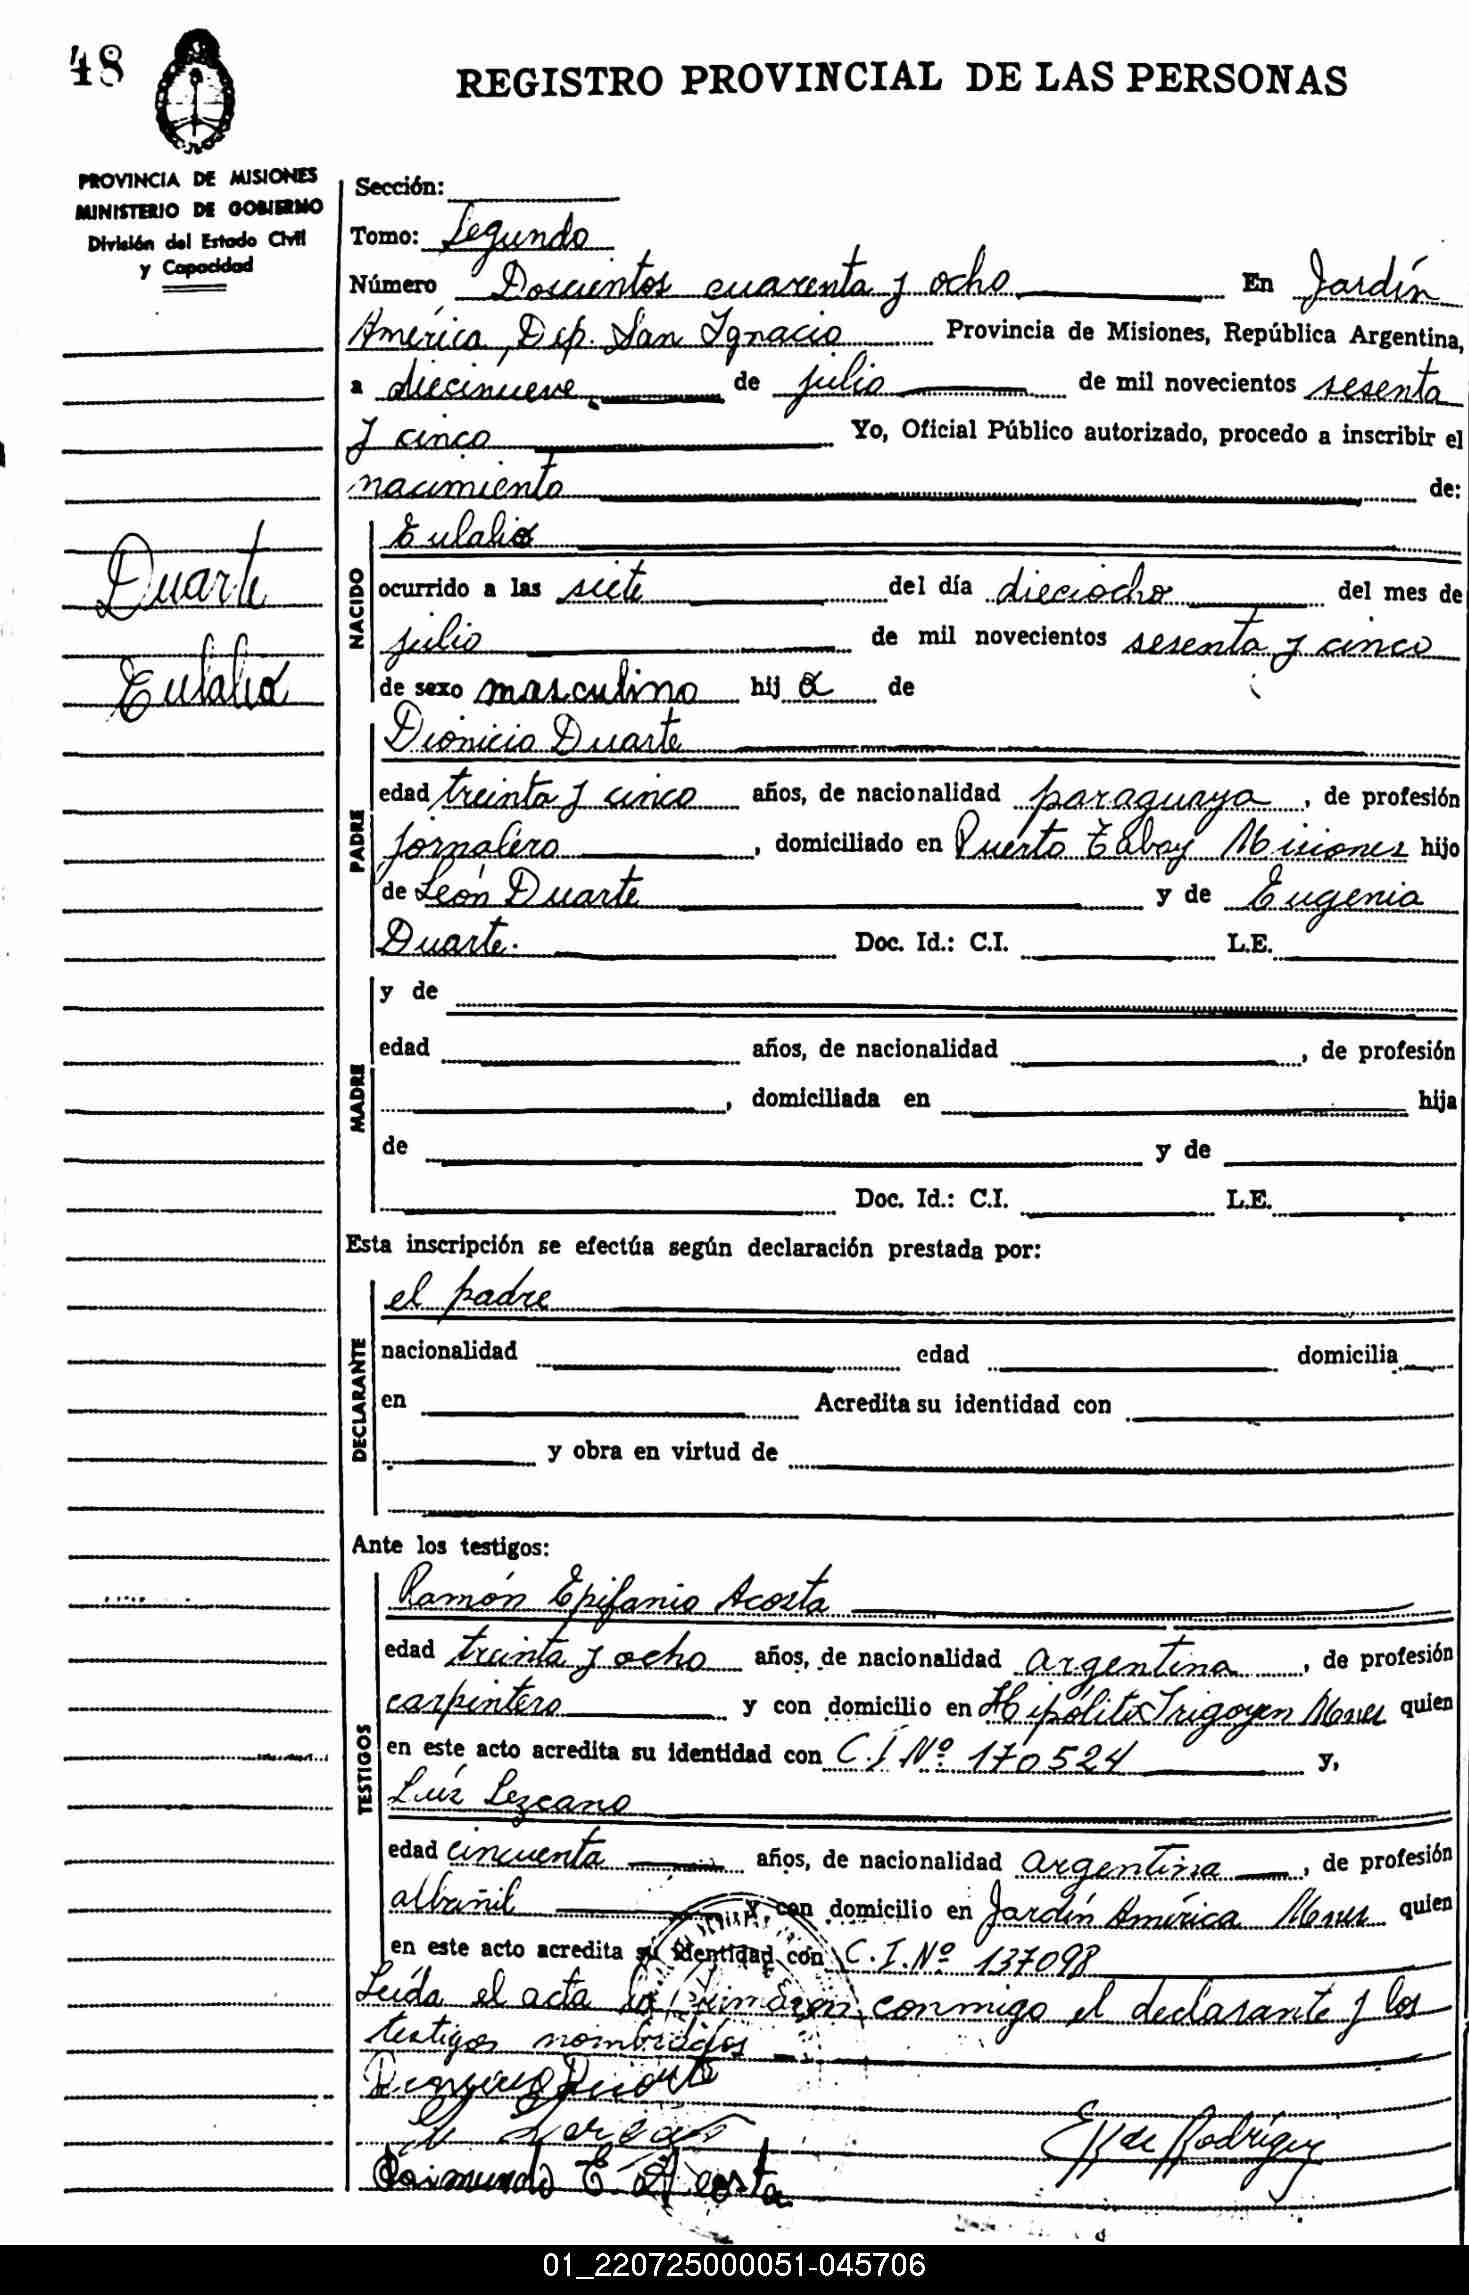 48
REGISTRO PROVINCIAL DE LAS PERSONAS
PROVINCIA DE MISIONES
MINISTERIO DE GOBIERNO
División del Estado Civil
y Capacidad
Sección:
Tomo: Segundo
Número Doscientos cuarenta y ocho En Jardín
América, Dep. San Ignacio Provincia de Misiones, República Argentina,
a diecinueve de julio de mil novecientos sesenta
y cinco Yo, Oficial Público autorizado, procedo a inscribir el
nacimiento de:
Duarte
Eulalia
NACIDO
Eulalia
ocurrido a las siete del día dieciocho del mes de
julio de mil novecientos sesenta y cinco
de sexo masculino hij a de
PADRE
Dionicio Duarte
edad treinta y cinco años, de nacionalidad paraguaya, de profesión
jornalero, domiciliado en Puerto Tabay Misiones hijo
de León Duarte y de Eugenia
Duarte. Doc. Id.: C.I. L.E.
MADRE
y de
edad años, de nacionalidad , de profesión
, domiciliada en hija
de y de
Doc. Id.: C.I. L.E.
Esta inscripción se efectúa según declaración prestada por:
DECLARANTE
el padre
nacionalidad edad domicilia
en Acredita su identidad con
y obra en virtud de
Ante los testigos:
TESTIGOS
Ramón Epifanio Acosta
edad treinta y ocho años, de nacionalidad argentina, de profesión
carpintero y con domicilio en Hipólito Irigoyen Mnes quien
en este acto acredita su identidad con C.I Nº 170524 y,
Luíz Lezcano
edad cincuenta años, de nacionalidad argentina, de profesión
albañil y con domicilio en Jardín América Mnes quien
en este acto acredita su identidad con C.I.Nº 137098
Leída el acta la firmaron conmigo el declarante y los
testigos nombrados
Duarte
de Rodríguez
Raimundo E. Acosta
01_220725000051-045706